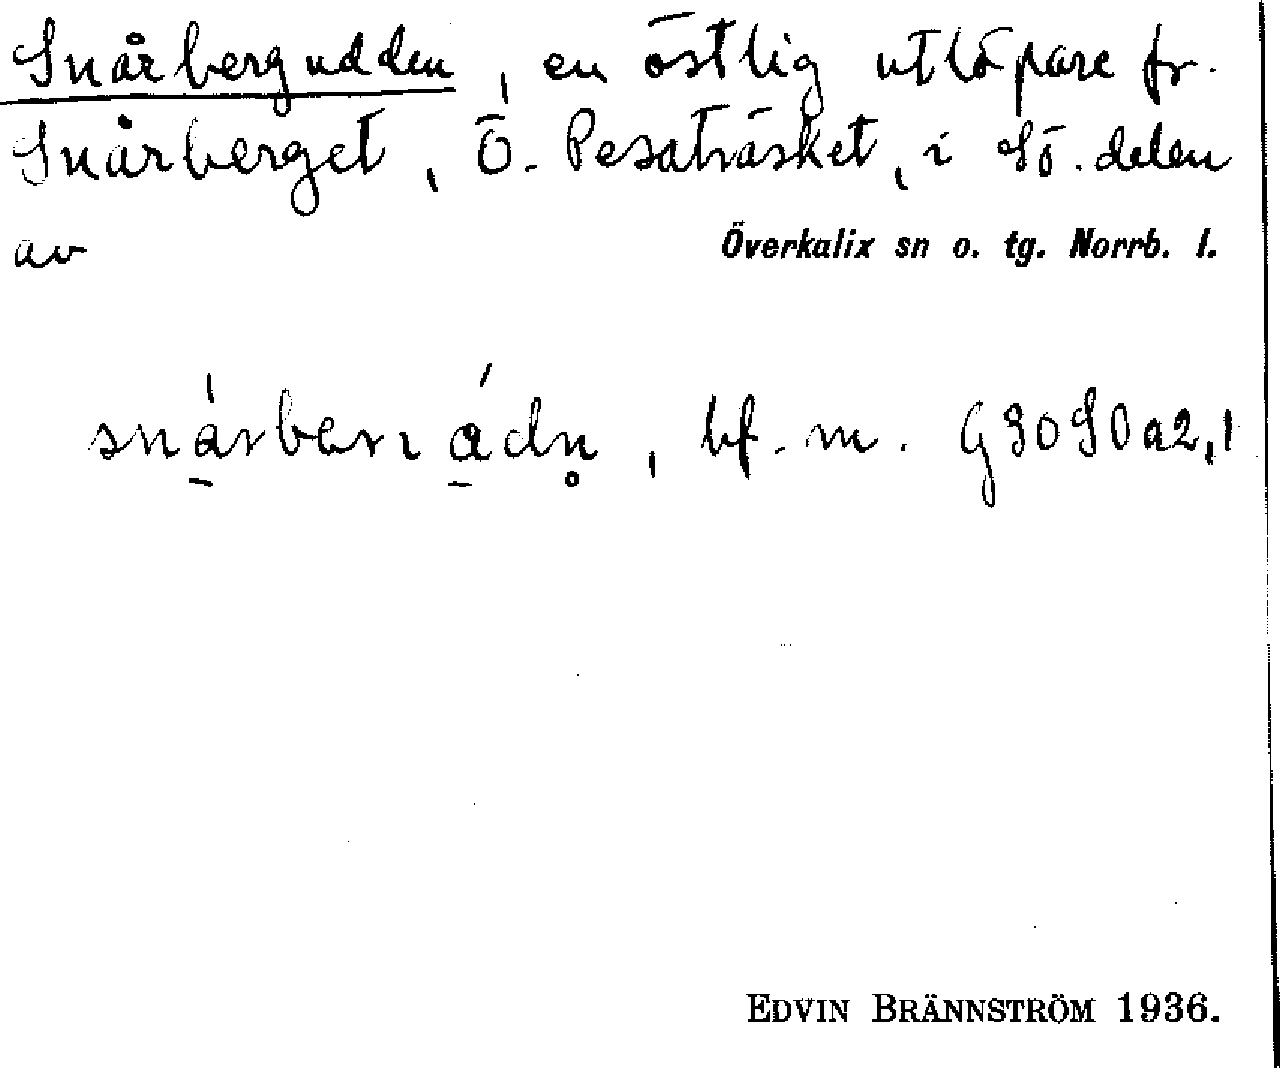 Snårbergudden, en östlig utlöpare fr.
Snårberget, Ö. Pesaträsket, i Sö. delen
av Överkalix sn o. tg. Norrb. l.
bf. m.
EDVIN BRÄNNSTRÖM 1936.